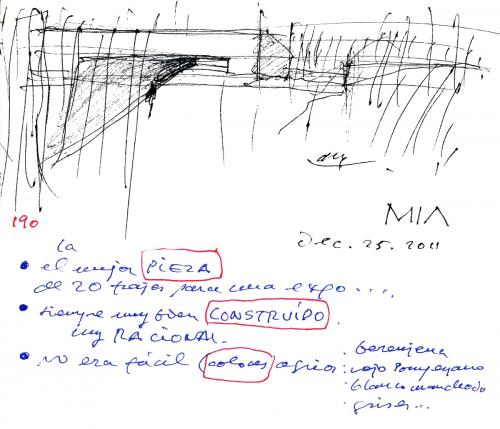 MIA
190
Dec. 25. 2011
la
• el mejor PIEZA
de 20 trajos para una expo ....
• siempre muy bien CONSTRUÍDO.
muy RACIONAL.
• no era fácil (colores) agrios:
. berenjena
rojo Pompeyano
. blanco manchado
. grises...